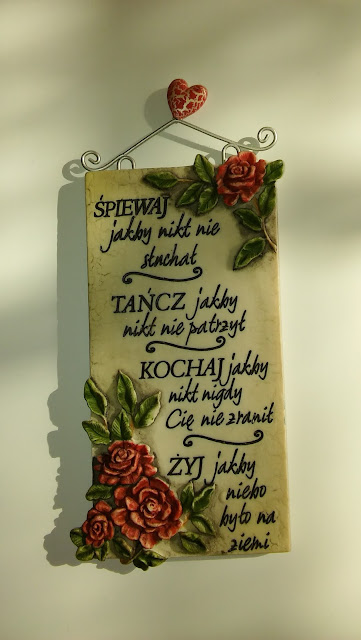 ŚPIEWAJ
jakby nikt nie
słuchał
TAŃCZ jakby
nikt nie patrzył
KOCHAJ jakby
nikt nigdy
Cię nie zranił
ŻYJ jakby
niebo
było na
ziemi